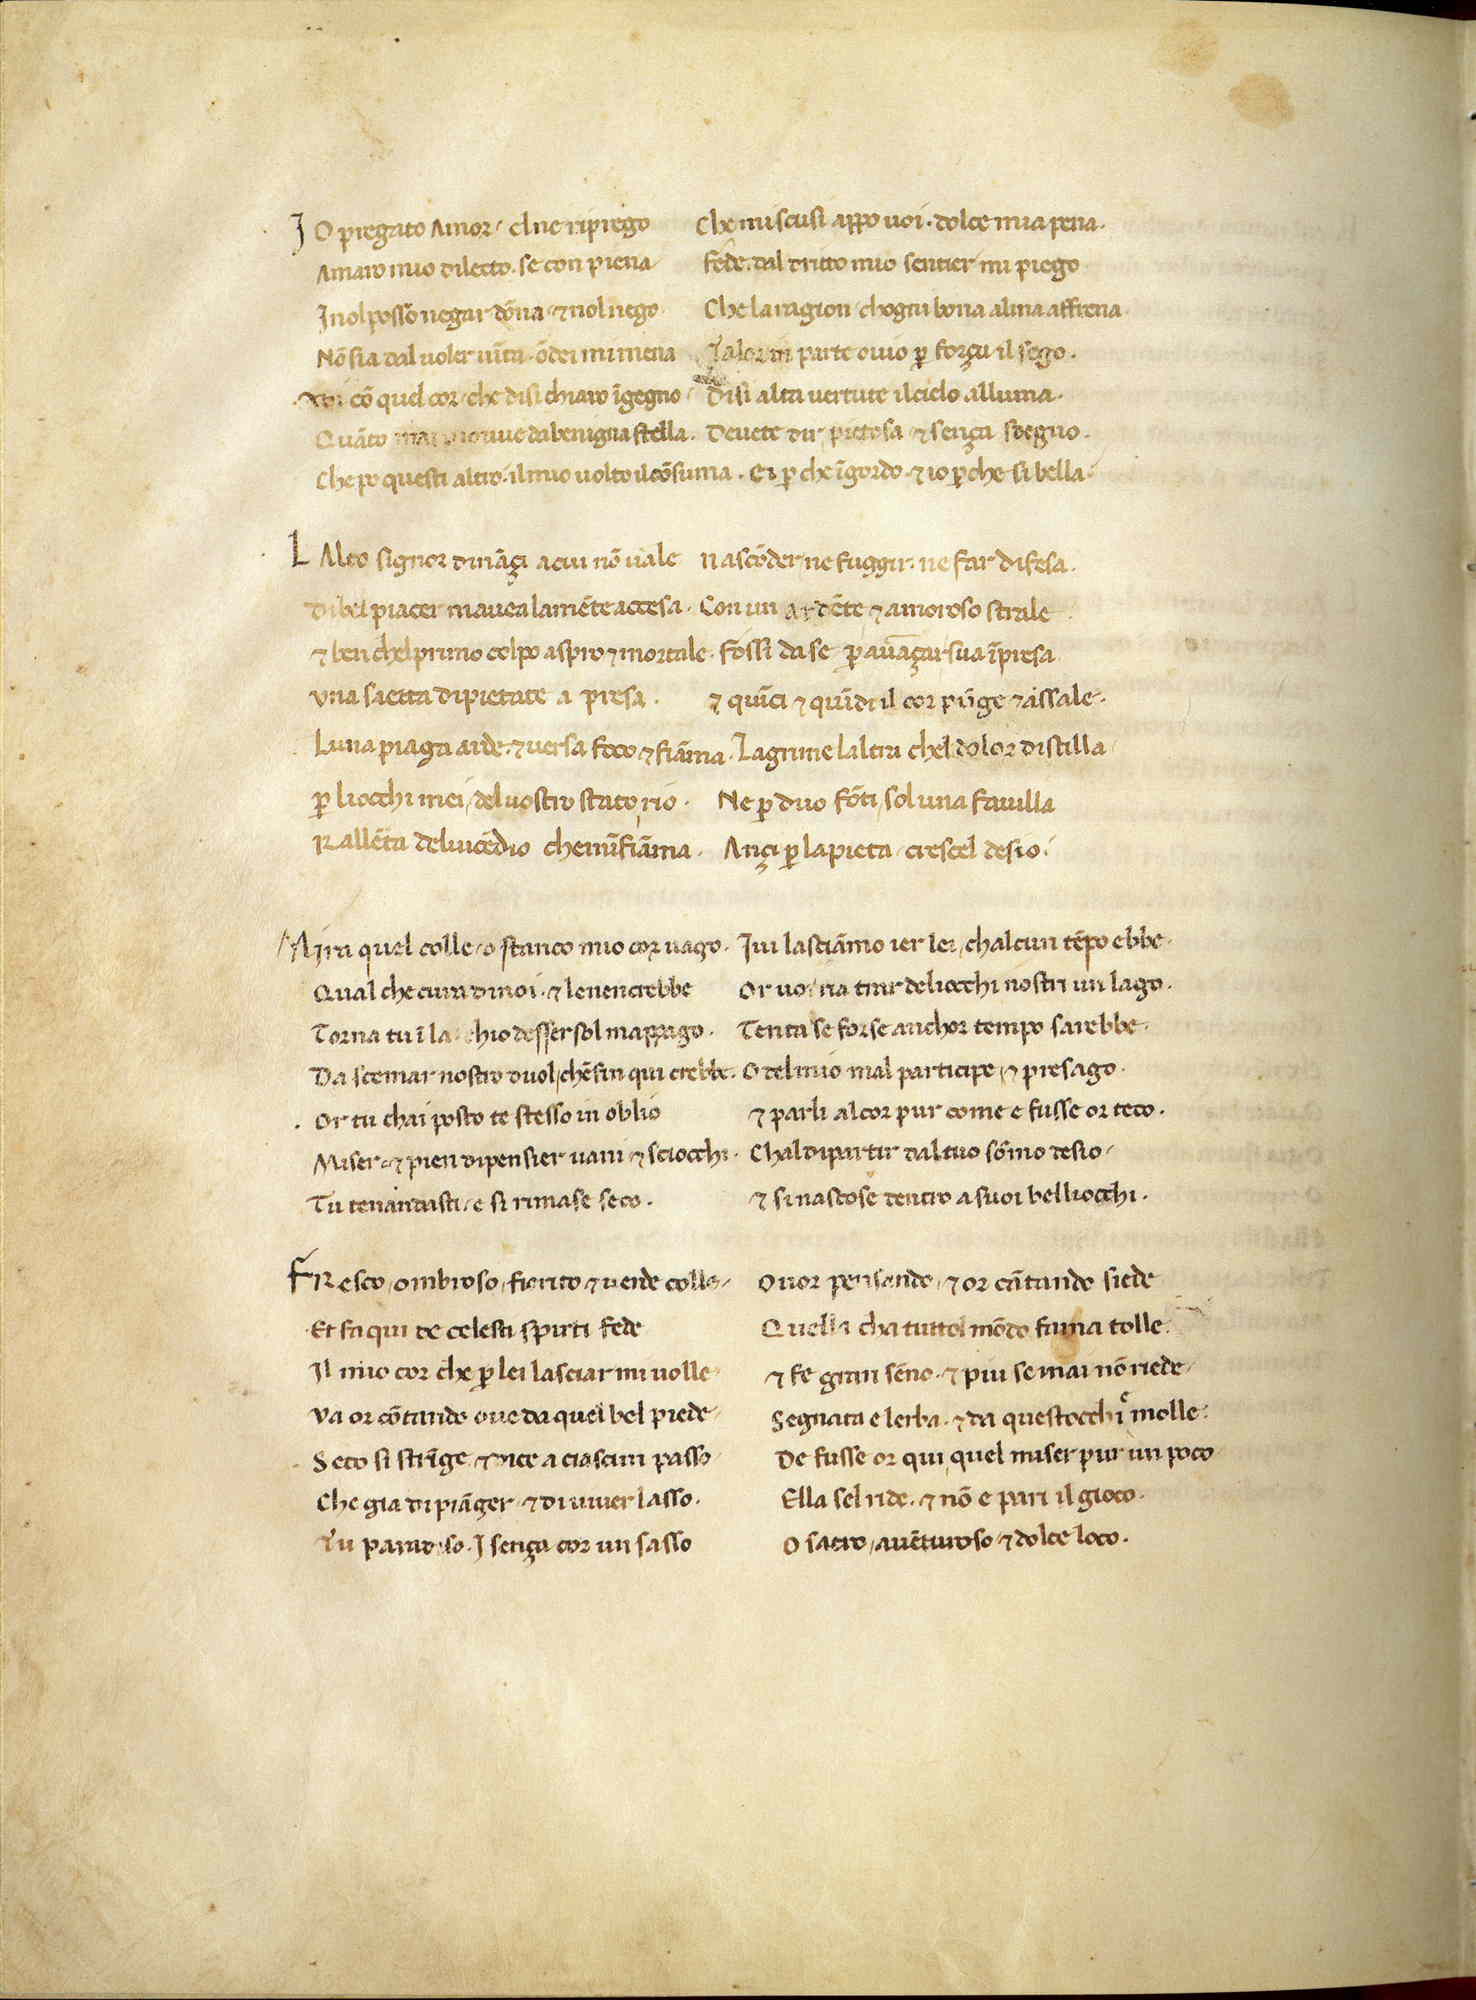 IO pregato Amor / chne ripiego Che mi scusi appo voi . dolce mia pena .
Amaro mio dilecto . se con piena fede . dal dritto mio sentier mi piego
I nol posso negar dōna / ⁊ nol nego Che la ragion / chogni bona alma affrena
Nō sia dal voler vīta . ōdei mi mena Talor in parte ovio ꝑ força il sego .
Voi cō quel cor / che disi chiaro īgegno / Disi alta vertute il cielo alluma .
Quāto mai piovve da benigna stella . Devete dir / pietosa / ⁊ sença sdegno .
Che po questi altro . il mio volto il cōsuma . Ei ꝑ che īgordo . ⁊ io ꝑche si bella .
LAlto signor dināçi a cui nō vale nascōder / ne fuggir . ne far difesa .
Di bel piacer mavea la mēte accesa . Con un ardēte ⁊ amoroso strale
⁊ ben chel primo colpo aspro ⁊ mortale . fossi da se ꝑ avāçar sua īpresa
Una saetta di pietate a presa . ⁊ quīci ⁊ quīdi il cor pūge ⁊ assale .
Luna piaga arde . ⁊ versa foco ⁊ fiāma . Lagrime laltra chel dolor distilla
ꝑ liocchi mei / del vostro stato rio . Ne ꝑ duo fōti / sol una favilla
Rallēta de līcēdio che mīfiāma . Ançi ꝑ la pieta / crescel desio .
Mira quel colle / o stanco mio cor vago . Ivi lasciāmo ier lei / chalcun tēpo ebbe .
Qual che cura di noi . ⁊ le nencrebbe Or vorria trar de liocchi nostri un lago .
Torna tu ī la . chio desser sol mappago . Tenta se forse anchor tempo sarebbe .
Da scemar nostro duol / chēfin qui crebbe . O del mio mal participe / ⁊ presago .
Or tu chai posto te stesso in oblio ⁊ parli al cor pur come e fusse or teco .
Miser . ⁊ pien di pensier vani ⁊ sciocchi . Chal dipartir dal tuo sōmo desio /
Tu tenandasti / e si rimase seco . ⁊ si nascose dentro a suoi belliocchi .
FResco / ombroso / fiorito ⁊ verde colle / Ovor pensando / ⁊ or cātando siede
Et fa qui de celesti spirti fede Quella cha tuttol mōdo fama tolle .
Il mio cor che ꝑ lei lasciar mi volle ⁊ fe gran sēno . ⁊ piu se mai nō riede /
Va or cōtando ove da quel bel piede / Segnata e lerba . ⁊ da questocchi e molle .
Seco si strīge / ⁊ dice a ciascun passo De fusse or qui / quel miser pur un poco
Che gia di piāger / ⁊ di viver lasso . Ella sel ride . ⁊ nō e pari il gioco .
Tu paradiso . I sença cor un sasso O sacro / avēturoso / ⁊ dolce loco .